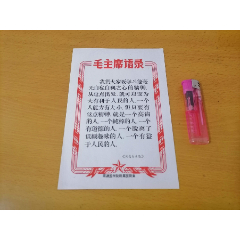 毛主席语录
我们大家要学习他毫
无自私自利之心的精神。
从这点出发，就可以变为
大有利于人民的人。一个
人能力有大小，但只要有
这点精神，就是一个高尚
的人，一个纯粹的人，一个
有道德的人，一个脱离了
低级趣味的人，一个有益
于人民的人。